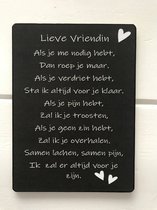 Lieve Vriendin
Als je me nodig hebt,
Dan roep je maar.
Als je verdriet hebt,
Sta ik altijd voor je klaar.
Als je pijn hebt,
Zal ik je troosten,
Als je geen zin hebt,
Zal ik je overhalen.
Samen lachen, samen pijn,
Ik zal er altijd voor je
zijn.